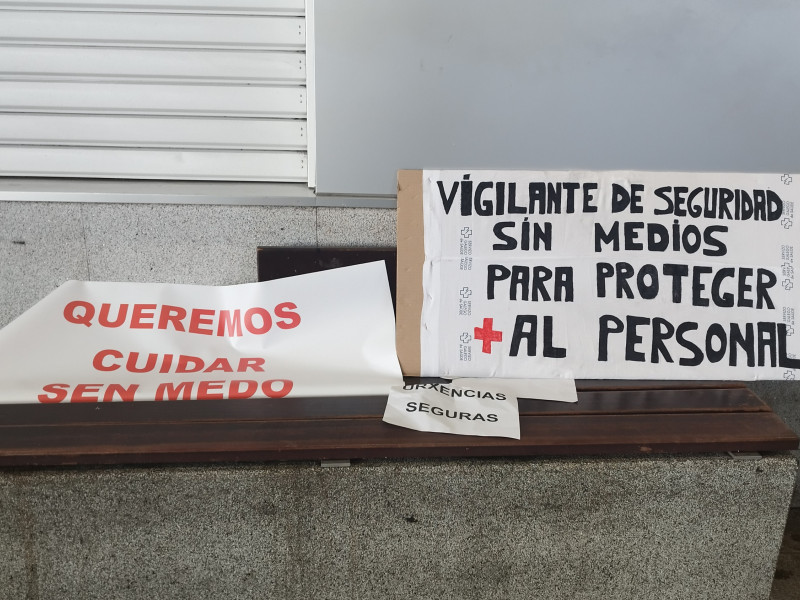 QUEREMOS
CUIDAR
SEN MEDO
VÍGILANTE DE SEGURIDAD
SÍN MEDIOS
PARA PROTEGER
+ AL PERSONAL
URXENCIAS
SEGURAS